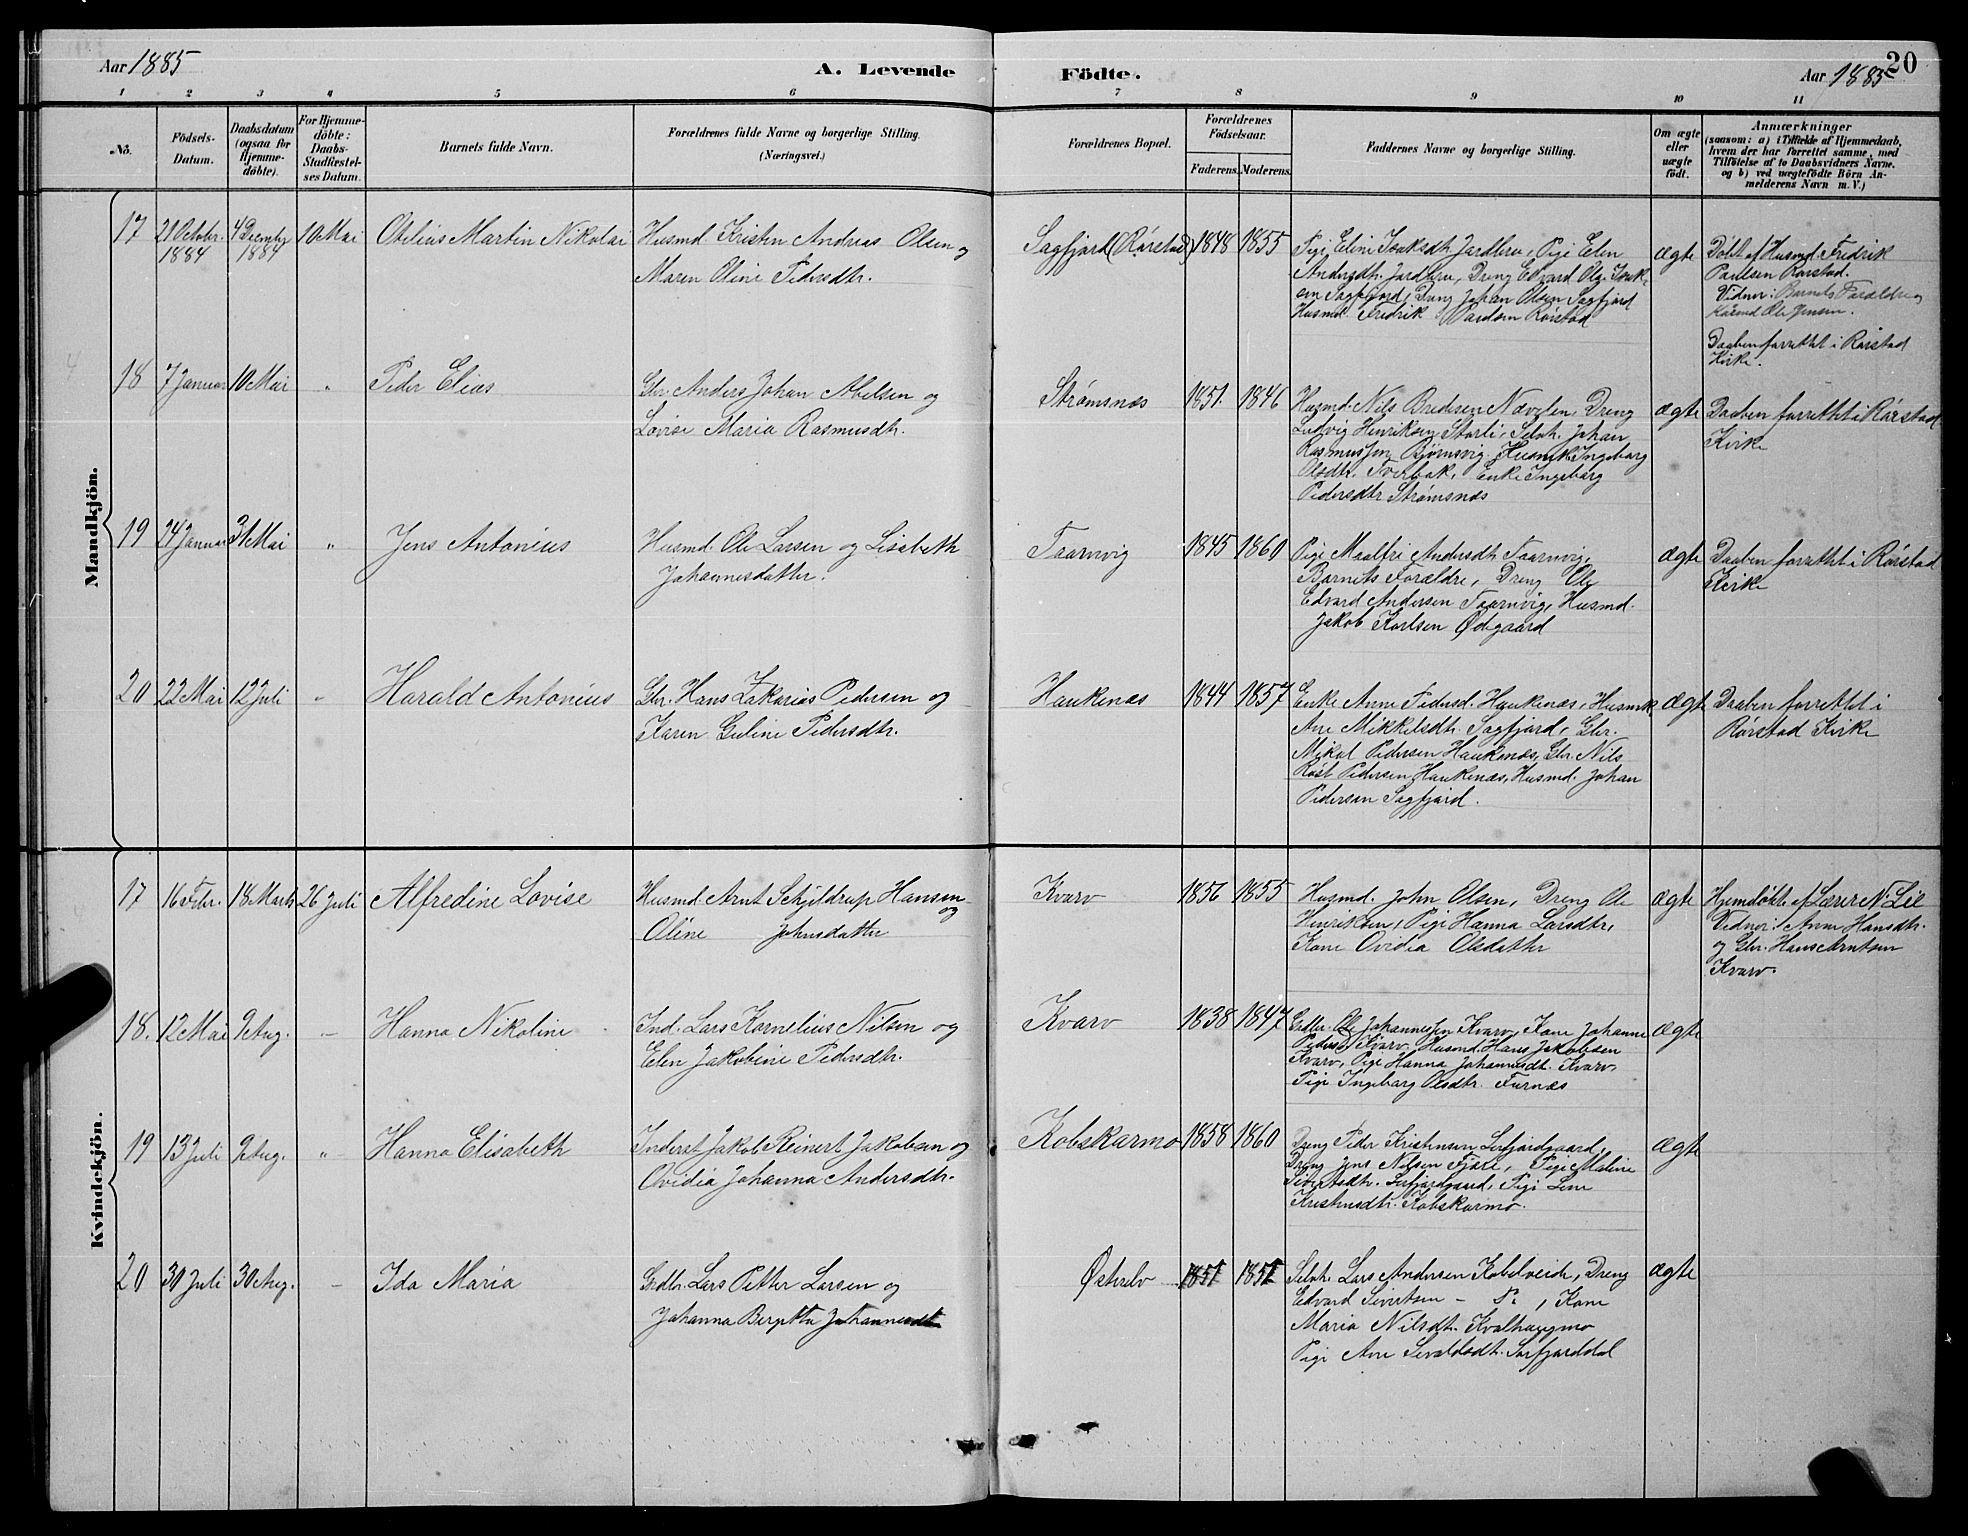 Aar 1885
A. Levende
Födte.
Aar 1885
20
1 2 3 4 5 6 7 8 9 10 11
No.
Födsels-
Datum.
Daabsdatum
(ogsaa for
Hjemme-
døbte).
For Hjemme-
døbte:
Daabs-
Stadfæstel-
ses Datum.
Barnets fulde Navn.
Forældrenes fulde Navne og borgerlige Stilling.
(Næringsvei.)
Forældrenes Bopæl.
Forældrenes
Födselsaar.
Faderens. Moderens.
Faddernes Navne og borgerlige Stilling.
Om ægte
eller
uægte
født.
Anmærkninger
(saasom: a) i Tilfælde af Hjemmedaab,
hvem der har forrettet samme, med
Tilføielse af to Daabsvidners Navne.
og b) ved uægtefødte Börn An-
melderens Navn m. V.)
Mandkjön.
17 21 Octobr. 1884 4 Decembr 1884 10 Mai Obelius Martin Nikolai
Husmd. Kristen Andreas Olsen og
Maren Oline Pedersdtr.
Sagfjord (Rørstad) 1848 1855
Pige Eline Isaksdtr. Jardbru, Pige Elen
Andersdtr. Jardbru, Dreng Edvard Olg. Isak-
sen Sagfjord, Dreng Johan Olsen Sagfjord
Husmd. Fredrik Paulsen Rørstad
ægte
Døbt af Husmd. Fredrik
Paulsen Rørstad.
Vidner: Barnets Forældre og
Husmd Ole Jensen.
Daaben forrettet i Rørstad
Kirke.
18 7 Januar 10 Mai " Peder Elias
Gbr. Anders Johan Abelsen og
Lovise Maria Rasmusdtr.
Strømsnæs 1851. 1846
Husmd. Nils Bredesen Nævelen, Dreng
Ludvig Henriksen Storli, Selvh. Johan
Rasmussen Bjørnsvig, Husmk. Ingeborg
Olsdtr. Tverbak, Enke Ingeborg
Pedersdtr Strømsnæs
ægte
Daaben forrettet i Rørstad
Kirke
19 24 Januar 31 Mai " Jens Antonius
Husmd. Ole Larsen og Lisabeth
Johannesdatter.
Taarnvig 1845 1860
Pige Maalfri Andersdtr. Taarnvig,
Barnets Forældre, Dreng Ole
Edvard Andersen Taarnvig, Husmd.
Jakob Karlsen Ødegaard
ægte
Daaben forrettet i Rørstad
Kirke
20 22 Mai 12 Juli " Harald Antonius
Gbr. Hans Zakarias Pedersen og
Karen Guline Pedersdtr.
Haukenæs 1844 1857
Enke Anne Pedersd. Haukenæs, Husmk
Ane Mikkelsdtr. Sagfjord, Gbr.
Mikal Pedersen Haukenæs, Gbr. Nils
Røst Pedersen Haukenæs, Husmd. Johan
Pedersen Sagfjord.
ægte
Daaben forrettet i
Rørstad Kirke
Kvindekjön.
17 16 Febr. 18 Marts 26 Juli Alfredine Lovise
Husmd. Arnt Schjeldrup Hansen
og
Oline Johnsdatter
Kvarv 1856 1855
Husmd. John Olsen, Dreng Ole
Henriksen, Pige Hanna Larsdtr,
Kone Ovidia Olsdatter
ægte
Hjemdøbt af Lærer N. Lie
Vidner: Anne Hansdtr.
og Gbr. Hans Arntsen
Kvarv.
18. 12 Mai 9 Aug. – Hanna Nikoline
Ind. Lars Kornelius Nilsen og
Elen Jakobine Pedersdtr.
Kvarv 1838 1847
Ole Johannessen Kvarv, Kone Johanne
Pedersd. Kvarv, Husmd. Hans Jakobsen
Kvarv, Pige Hanna Johannesdt. Kvarv,
Pige Ingeborg Olsdtr. Furnæs
ægte
19 13 Juli 9 Aug. " Hanna Elisabeth
Inderst Jakob Reinert Jakobsen og
Ovidia Johanna Andersdtr.
Kobskarmo 1858 1860
Dreng Peder Kristensen Sørfjordgaard,
Dreng Jens Nilsen Fjære, Pige Maline
Sivertsdtr. Sørfjordgaard, Pige Lene
Kristensdtr. Kobskarmo.
ægte
20 30 Juli 30 Aug. – Ida Maria
Gdbr. Lars Petter Larsen og
Johanna Bergitta Johannesdt
Østrelv 1851 1851
Selvh. Lars Andersen Kobelveide, Dreng
Edvard Sivertsen – do , Kone
Maria Nilsdt. Kvalhaugmo
Pige Ane Sevaldsdt. Sørfjorddal
ægte